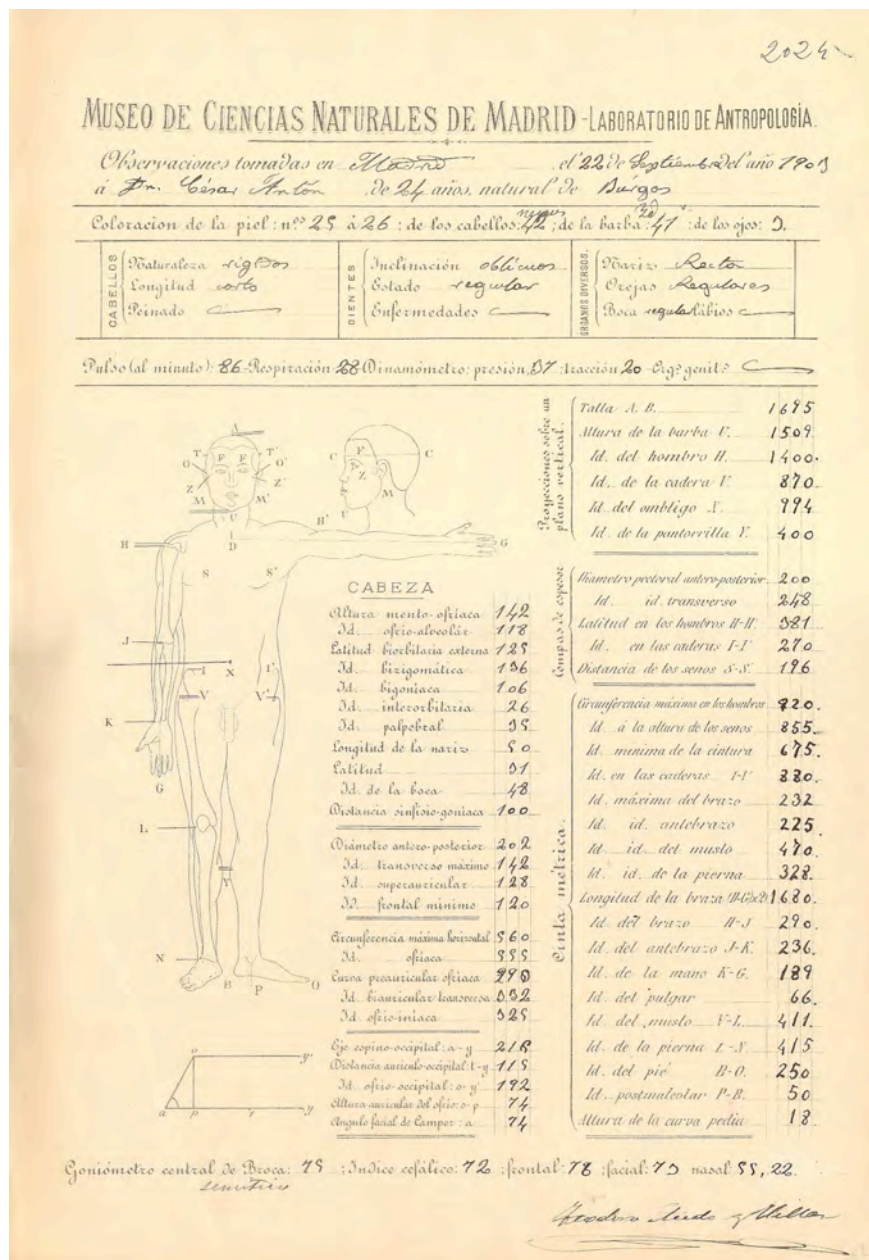 2024
MUSEO DE CIENCIAS NATURALES DE MADRID - LABORATORIO DE ANTROPOLOGÍA.
Observaciones tomadas en Madrid el 22 de Septiembre del año 1903
á Dn. César Antón de 24 años, natural de Búrgos
Coloración de la piel: nos 25 á 26: de los cabellos: negros 42; de la barba: 41: de los ojos: 3.
CABELLOS
Naturaleza rígidos
Longitud corto
Peinado
DIENTES
Inclinación oblícuos
Estado regular
Enfermedades
ORGANOS DIVERSOS.
Nariz Recta
Orejas Regulares
Boca regular lábios
Pulso (al minuto): 86 - Respiración 28 Dinamómetro: presión, 37: tracción 20 - Orgs genits
A
T F T'
O O'
Z Z'
M M'
U
C F C
Z
M
U
H H'
D
G
S S'
J
I X I'
V V'
K
G
L
Y
N
B P O
CABEZA
Altura mento-ofríaca 142
Id. ofrio-alveolár 118
Latitud biorbitaria externa 125
Id. bizigomática 136
Id. bigoníaca 106
Id. interorbitaria 26
Id. palpebral 35
Longitud de la nariz 50
Latitud 31
Id. de la boca 48
Distancia sinfisio-goníaca 100
Diámetro antero-posterior 202
Id. transverso máximo 142
Id. superauricular 128
ID. frontal mínimo 120
Circunferencia máxima horizontal 560
Id. ofríaca 555
Curva preauricular ofríaca
Id. biauricular transversa 332
Id. ofrio-iníaca 325
Eje espino-occipital: a-y
Distancia auriculo-occipital: t-y 115
Id. ofrio-occipital: o-y' 192
Altura auricular del ofrio: o-p 74
Angulo facial de Camper: a 74
o y'
a p r y
Proyecciones sobre un plano vertical.
Talla A. B. 1695
Altura de la barba U. 1509
Id. del hombro H. 1400.
Id. de la cadera V. 870
Id. del ombligo X. 994
Id. de la pantorrilla Y. 400
Compás de espesor
Diámetro pectoral antero-posterior 200
Id. id. transverso 248
Latitud en los hombros H-H' 381
Id. en las caderas I-I' 270
Distancia de los senos S-S' 196
Cinta métrica.
Circunferencia máxima en los hombros 920.
Id. á la altura de los senos 855.
Id. mínima de la cintura 675.
Id. en las caderas I-I' 880.
Id. máxima del brazo 232
Id. id. antebrazo 225
Id. id. del muslo 470.
Id. id. de la pierna 328.
Longitud de la braza (D-G)x2) 1680.
Id. del brazo H-J 290.
Id. del antebrazo J-K. 236.
Id. de la mano K-G. 189
Id. del pulgar 66.
Id. del muslo V-L. 411.
Id. de la pierna L-N. 415
Id. del pié B-O. 250
Id. postmaleolar P-B. 50
Altura de la curva pedia 18.
Goniómetro central de Broca: 75: Indice cefálico: 72: frontal: 78: facial: 73 nasal 55,22.